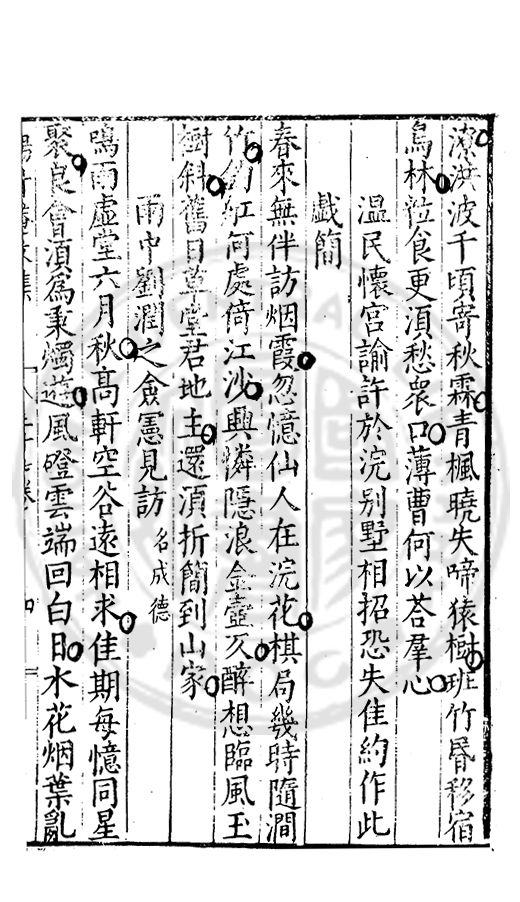 濱洪波千頃寄秋霖青楓曉失啼猿樹班竹昏移宿
鳥林粒食更湏愁衆口薄曹何以荅羣心
溫民懷宮諭許於浣別墅相招恐失佳約作此
戲簡
春來無伴訪烟霞忽憶仙人在浣花棋局幾時隨澗
竹釣缸何處倚江沙興憐隱浪金壺又醉想臨風玉
樹斜舊日草堂君地主還湏折簡到山家
雨中劉潤之僉憲見訪名成德
鳴雨虛堂六月秋高軒空谷遠相求佳期每憶同星
聚良會湏爲秉燭遊風磴雲端回白日水花烟葉亂